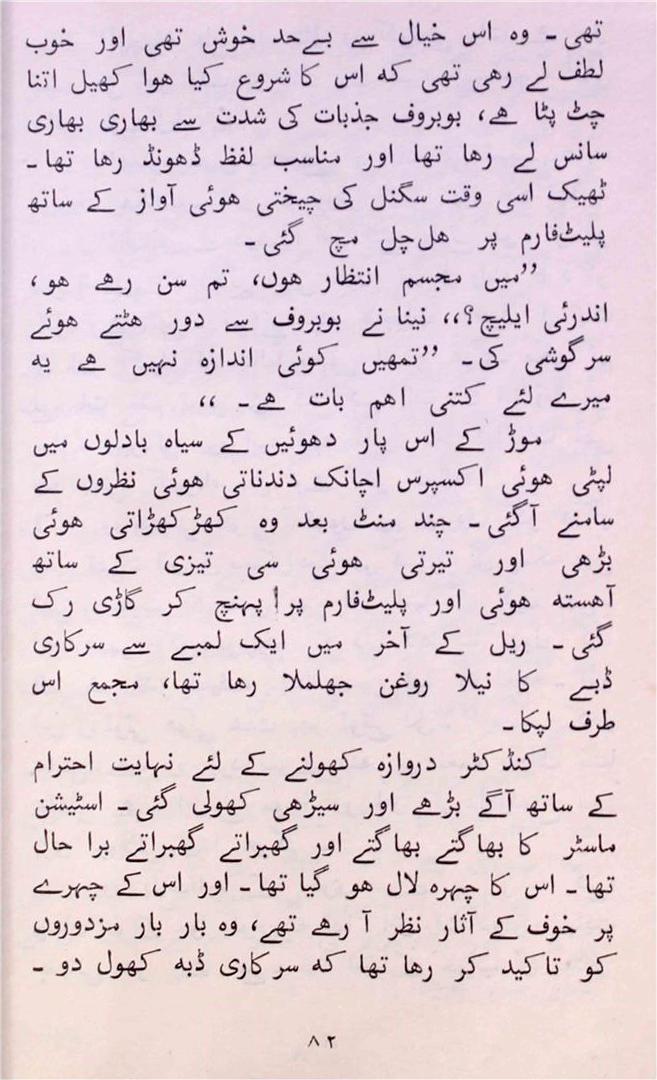 تھی۔ وہ اس خیال سے بے حد خوش تھی اور خوب
لطف لے رھی تھی که اس کا شروع کیا ھوا کھیل اتنا
چٹ پٹا ھے، بوبروف جذبات کی شدت سے بھاری بھاری
سانس لے رھا تھا اور مناسب لفظ ڈھونڈ رھا تھا۔
ٹھیک اسی وقت سگنل کی چیختی ھوئی آواز کے ساتھ
پلیٹ‌فارم پر ھل‌چل مچ گئی۔
’’میں مجسم انتظار ھوں، تم سن رھے ھو،
اندرئی ایلیچ؟،، نینا نے بوبروف سے دور ھٹتے ھوئے
سرگوشی کی۔ ’’تمھیں کوئی اندازہ نہیں ھے یه
میرے لئے کتنی اھم بات ھے۔ ،،
موڑ کے اس پار دھوئیں کے سیاہ بادلوں میں
لپٹی ھوئی اکسپرس اچانک دندناتی ھوئی نظروں کے
سامنے آ گئی۔ چند منٹ بعد وہ کھڑکھڑاتی ھوئی
بڑھی اور تیرتی ھوئی سی تیزی کے ساتھ
آھسته ھوئی اور پلیٹ‌فارم پر پہنچ کر گاڑی رک
گئی۔ ریل کے آخر میں ایک لمبے سے سرکاری
ڈبے کا نیلا روغن جھلملا رھا تھا، مجمع اس
طرف لپکا۔
کنڈکٹر دروازہ کھولنے کے لئے نہایت احترام
کے ساتھ آگے بڑھے اور سیڑھی کھولی گئی۔ اسٹیشن
ماسٹر کا بھاگتے بھاگتے اور گھبراتے گھبراتے برا حال
تھا۔ اس کا چہرہ لال ھو گیا تھا۔ اور اس کے چہرے
پر خوف کے آثار نظر آ رھے تھے، وہ بار بار مزدوروں
کو تاکید کر رھا تھا که سرکاری ڈبه کھول دو۔
۸۲